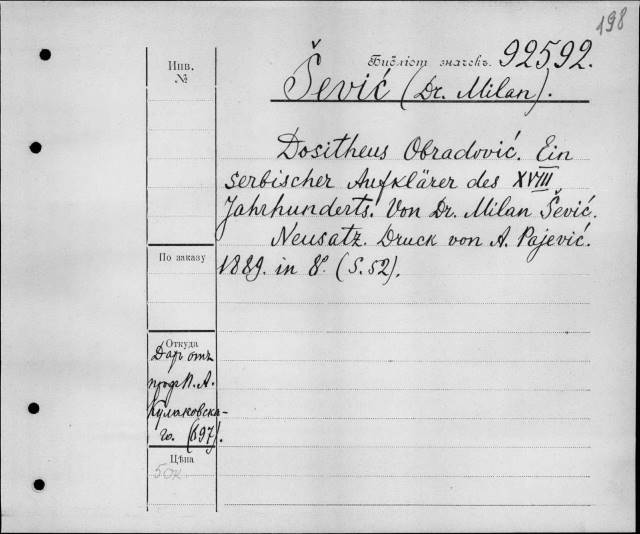 198
Инв.
№
Библіот. значекъ. 92592.
Šević (Dr. Milan).
Dositheus Obradović. Ein
serbischer Aufklärer des XVIII
Jahrhunderts. Von Dr. Milan Šević.
Neusatz. Druck von A. Pajević.
1889. in 8º. (S. 52).
По заказу
Откуда
Даръ отъ
проф. П. А.
Кулаковска-
го. (697).
Цѣна
50к